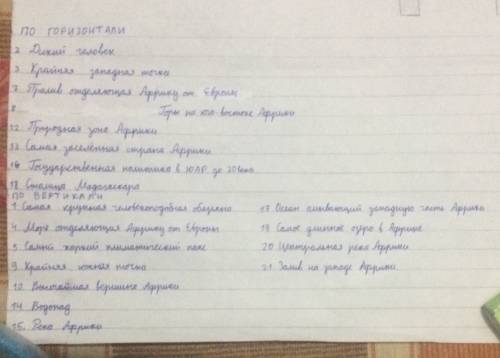 ПО ГОРИЗОНТАЛИ
2 Дикий человек
3 Крайняя западная точка
7 Пролив отделяющая Африку от Европы
8 Горы на юго-востоке Африки
12 Природная зона Африки
13 Самая заселённая страна Африки
16 Государственная политика в ЮАР до 20 века
18 Столица Мадагаскара
ПО ВЕРТИКАЛИ
1 Самая крупная человекоподобная обезьяна
4 Море отделяющая Африку от Европы
5 Самый жаркий климатический пояс
9 Крайняя южная точка
10 Высочайшая вершина Африки
14 Водопад
15. Река Африки
17 Океан омывающий западную часть Африки
19 Самое длинное озеро в Африке
20 Центральная река Африки
21 Залив на западе Африки